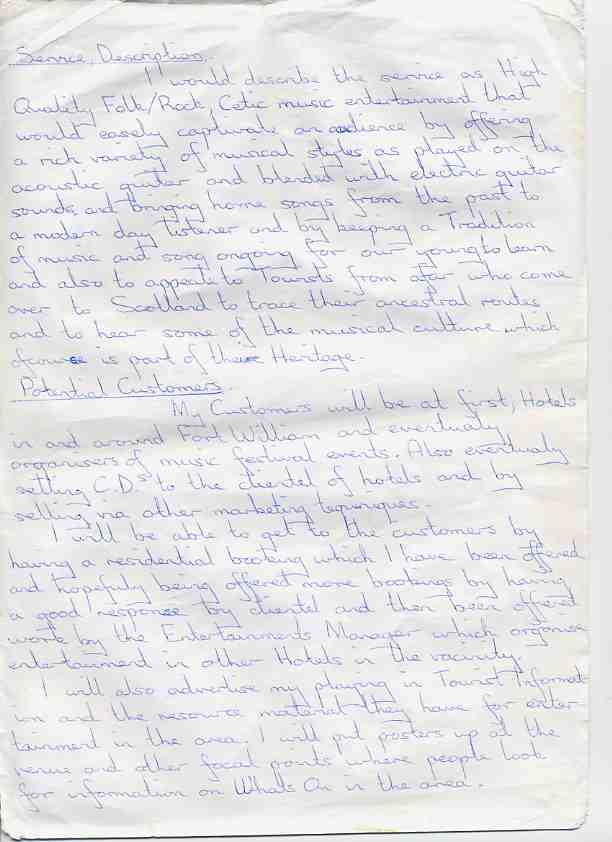 Service Description.
I would describe the service as High
Quality Folk/Rock, Celtic music entertainment that
would easely captivate an audience by offering
a rich variety of musical styles as played on the
acoustic guitar and blended with electric guitar
sounds, and bringing home songs from the past to
a modern day listener and by keeping a Tradition
of music and song ongoing for our young to learn
and also to appeal to Tourists from afar who come
over to Scotland to trace their ancestral routes
and to hear some of the musical culture which
ofcourse is part of their Heritage.
Potential Customers.
My Customers will be at first, Hotels
in and around Fort William and eventualy
organisers of music festival events. Also eventualy
selling C.D.s to the clientel of hotels and by
selling via other marketing tequniques.
I will be able to get to the customers by
having a residential booking which I have been offered
and hopefully being offeret more bookings by having
a good response by clientel and then been offeret
work by the Entertainments Manager which organise
entertainment in other Hotels in the vacinity.
I will also advertise my playing in Tourist Informat-
ion and the resource material they have for enter-
tainment in the area. I will put posters up at the
venue and other focal points where people look
for information on Whats On in the area.